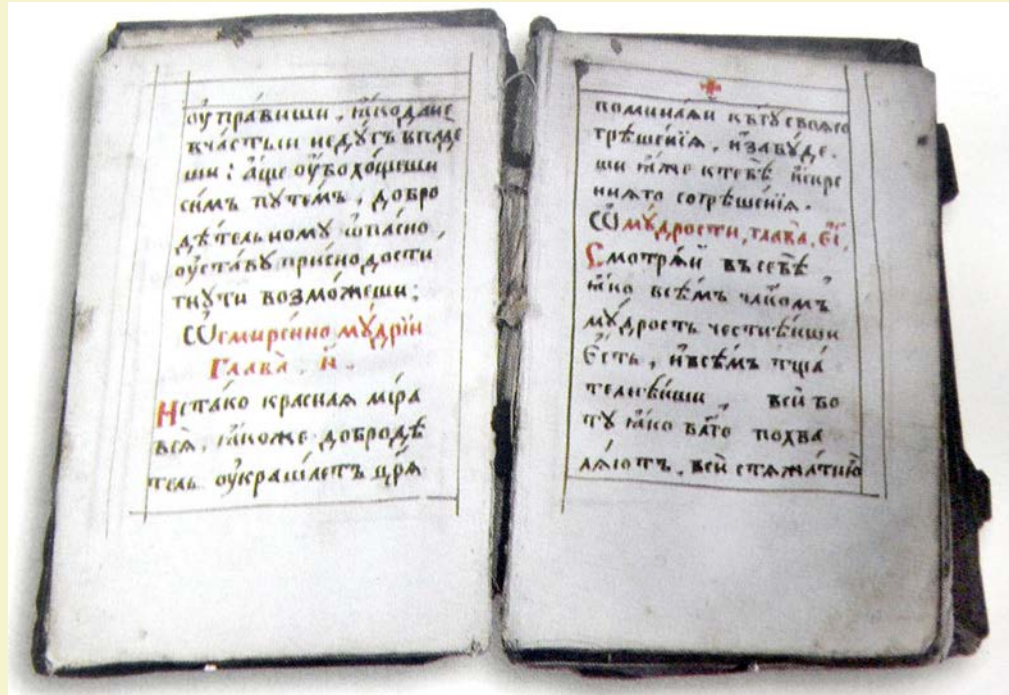 оу҆пра́виши , ꙗ҆ко да не
вча́стыи неду́гъ впаде
ши : а҆́ще оу҆́бо хо́щеши
си́мъ путе́мъ , добро
дѣ́тельному ѡ҆па́сно
оу҆ста́ву присно дости́
гнути возмо́жеши ;
Ѿ смире́нно му́дрїи
Глава̀ . и҃ .
Не та́ко кра́сная мі́ра
вся̀ , ꙗ҆́коже доброд́ѣ
тель оу҆краша́етъ цр҃ѧ̀
помина́ѧй къ бг҃у своѧ со
грѣше́нїѧ , и҆ забу́де
ши ꙗ҆̀же к тебѣ̀ и҆́скре
нѧго согрѣше́нїѧ .
Ѿ му́дрости , глава̀ , є҃і .
Смотрѧ́й въ себѣ̀
ꙗ҆́ко всѣ́мъ чл҃комъ
му́дрость честнѣ́йши
є҆́сть , и҆ всѣ́мъ тща́
телнѣ́йши вси́ бо
ту ꙗ҆́ко бл҃го похва
лѧ́ютъ , вси́ стѧжа́тию